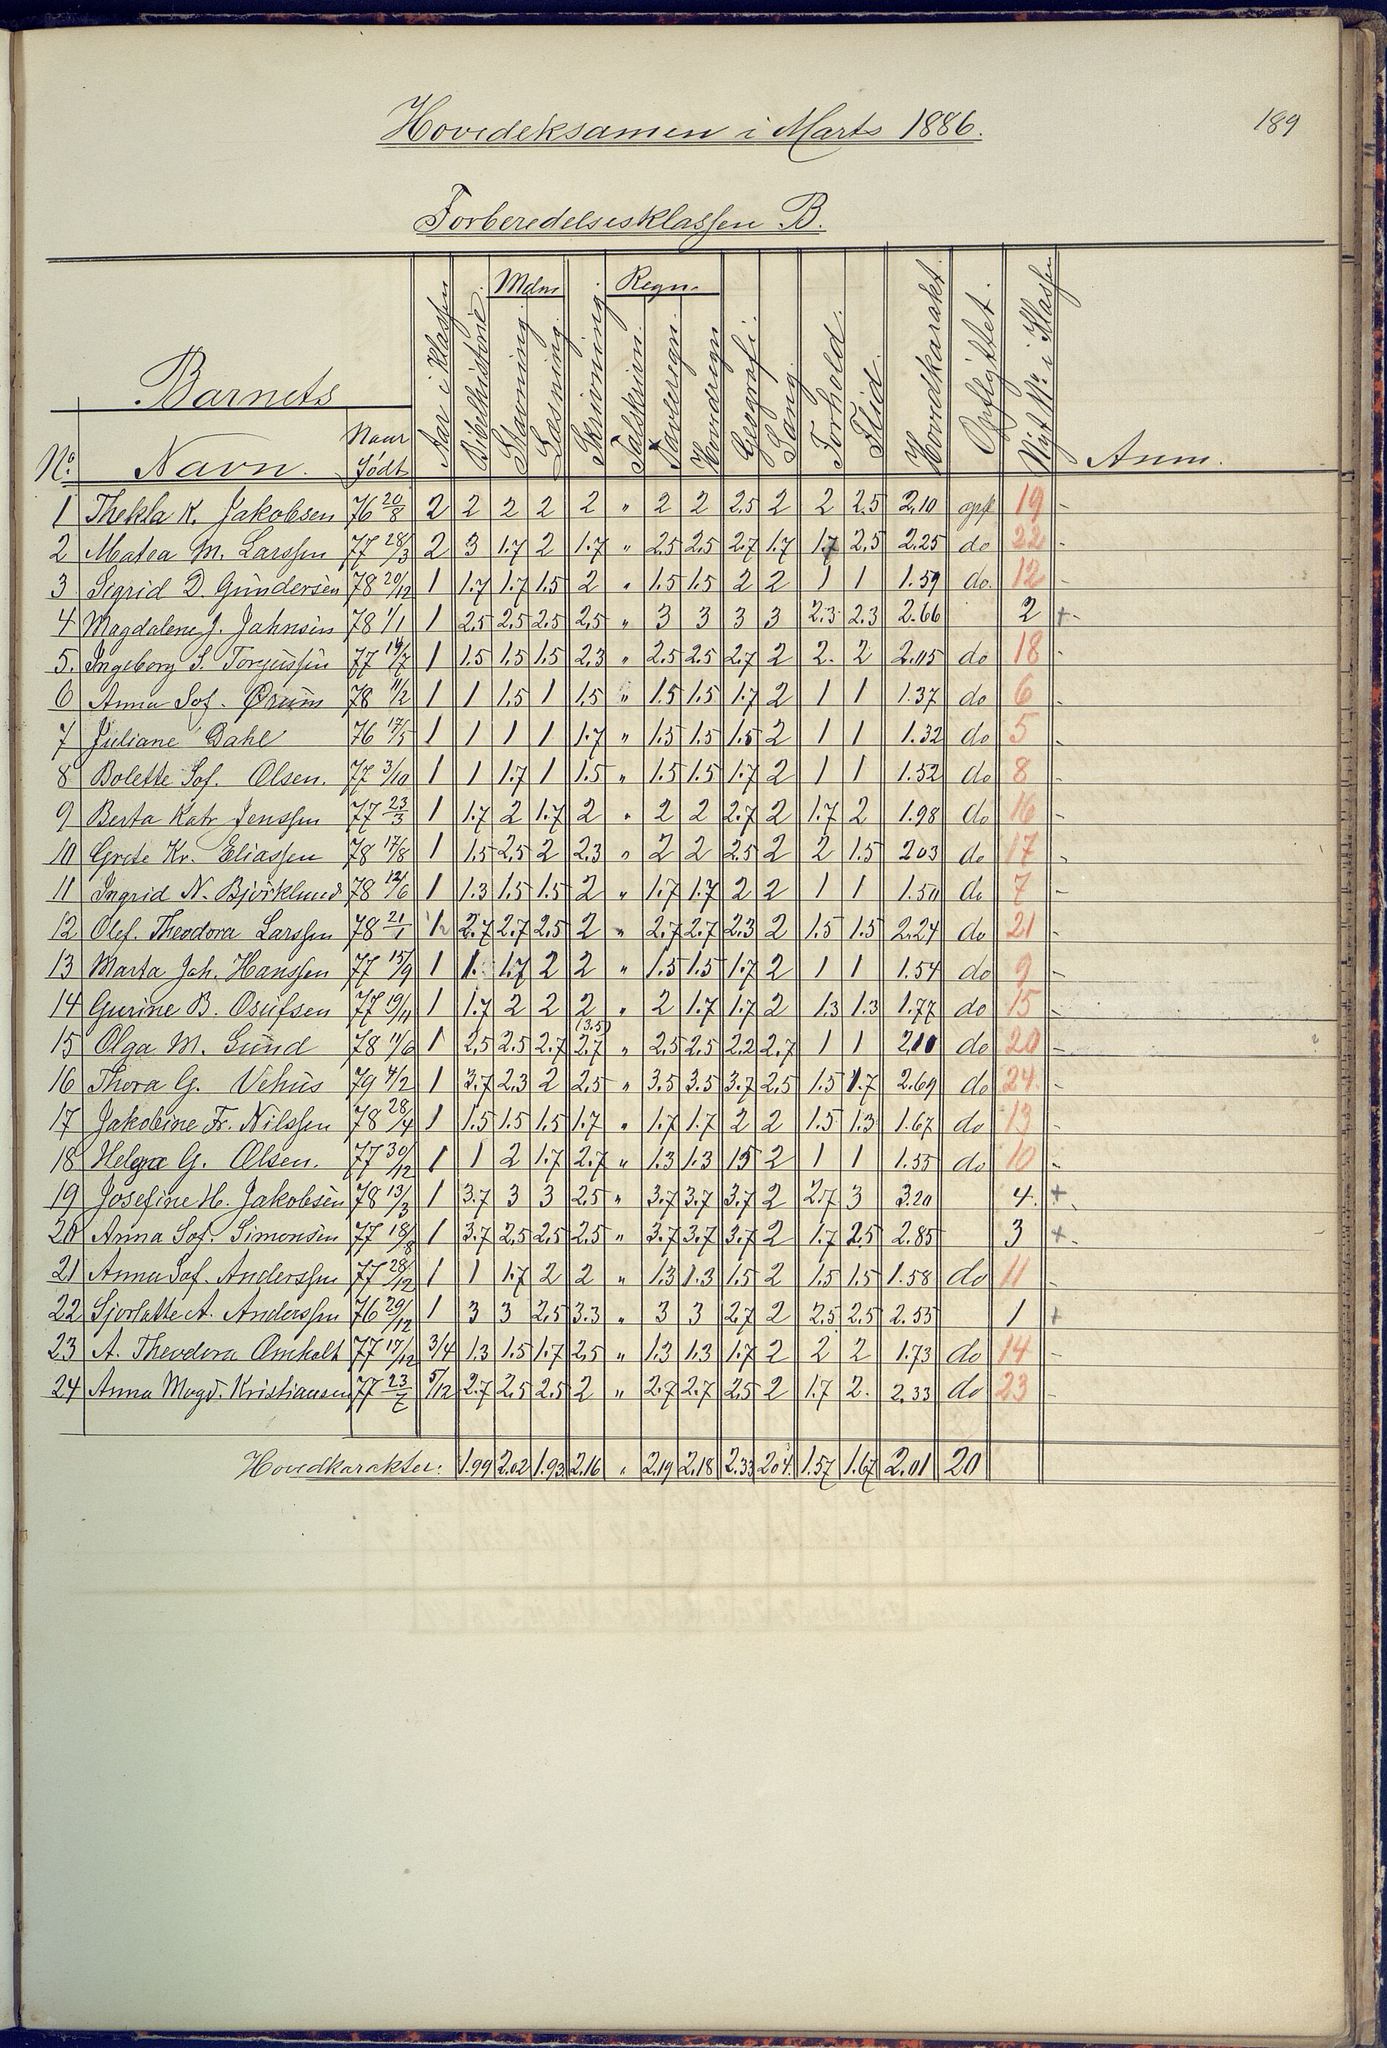 Hovedeksamen i Marts 1886.
189
Forberedelsesklassen B.
Mdm Regn.
Barnets
No. Navn. Naar Født Aar i Klassen Bibelhistorie. Stavning. Læsning. Skrivning. Talskrivn. Tavleregn. Hovedregn Geografi. Sang. Forhold. Flid. Hovedkarakt. Opflyttet. Nyt No i Klassen Anm.
1 Thekla K. Jakobsen 76 20/8 2 2 2 2 2 " 2 2 2.5 2 2 2.5 2.10 opf 19 -
2 Matea M. Larssen 77 28/3 2 3 1.7 2 1.7 " 2.5 2.5 2.7 1.7 1.7 2.5 2.25 do 22 -
3 Sigrid D. Gundersen 78 20/12 1 1.7 1.7 1.5 2 " 1.5 1.5 2 2 1 1 1.59 do. 12 -
4 Magdalene J. Jahnsen 78 1/1 1 2.5 2.5 2.5 2.5 " 3 3 3 3 2.3 2.3 2.66 2 +
5. Ingeborg S. Torjussen 77 14/7 1 1.5 1.5 1.5 2.3 " 2.5 2.5 2.7 2 2. 2 2.05 do 18 -
6 Anna Sof. Ørum 78 11/2 1 1 1.5 1 1.5 " 1.5 1.5 1.7 2 1 1 1.37 do 6 -
7 Juliane Dahl 76 17/5 1 1 1 1 1.7 " 1.5 1.5 1.5 2 1 1 1.32 do 5 -
8 Bolette Sof. Olsen. 77 3/10 1 1 1.7 1 1.5 " 1.5 1.5 1.7 2 1 1 1.52 do 8 -
9 Berta Katr Jenssen 77 23/3 1 1.7 2 1.7 2 " 2 2 2.7 2 1.7 2 1.98 do 16 -
10 Grete Kr. Eliassen 78 17/8 1 1.5 2.5 2 2.3 " 2 2 2.5 2 2 1.5 2.03 do 17 -
11 Ingrid N. Bjørklund 78 12/6 1 1.3 1.5 1.5 2 " 1.7 1.7 2 2 1 1 1.50 do 7 -
12 Olef. Theodora Larssen 78 21/1 1/2 2.7 2.7 2.5 2 " 2.7 2.7 2.3 2 1.5 1.5 2.24 do 21 -
13 Marta Joh. Hanssen 77 15/9 1 1. 1.7 2 2 " 1.5 1.5 1.7 2 1 1 1.54 do 9 -
14 Gurine B. Osufsen 77 19/11 1 1.7 2 2 2 " 2 1.7 1.7 2 1.3 1.3 1.77 do 15 -
(3.5)
15 Olga M. Lund 78 11/6 1 2.5 2.5 2.7 2.7 " 2.5 2.5 2.2 2.7 1 1 2.10 do 20 -
16 Thora G. Vehus 79 4/2 1 3.7 2.3 2 2.5 " 3.5 3.5 3.7 2.5 1.5 1.7 2.69 do 24. -
17 Jakobine Fr. Nilssen 78 28/4 1 1.5 1.5 1.5 1.7 " 1.7 1.7 2 2 1.5 1.3 1.67 do 13 -
18 Helga G. Olsen. 77 30/12 1 1 2 1.7 2.7 " 1.3 1.3 1.5 2 1 1 1.55 do 10 -
19 Josefine H. Jakobsen 78 13/3 1 3.7 3 3 2.5 " 3.7 3.7 3.7 2 2.7 3 3.20 4. +
20 Anna Sof. Simonsen 77 18/8 1 3.7 2.5 2.5 2.5 " 3.7 3.7 3.7 2 1.7 2.5 2.85 3 +
21 Anna Sof. Anderssen 77 28/12 1 1 1.7 2 2 " 1.3 1.3 1.5 2 1.5 1.5 1.58 do 11 -
22 Sjorlatte A. Anderssen 76 29/12 1 3 3 2.5 3.3 " 3 3 2.7 2 2.5 2.5 2.55 1 +
23 A. Theodora Omholt 77 17/12 3/4 1.3 1.5 1.7 2.5 " 1.3 1.3 1.7 2 2 2 1.73 do 14 -
24 Anna Magd. Kristiansen 77 23/7 5/12 2.7 2.5 2.5 2 " 2.7 2.7 2.5 2 1.7 2. 2.33 do 23 -
Hovedkarakter: 1.99 2.02 1.93 2.16 " 2.19 2.18 2.33 2.04 1.57 1.67 2.01 20